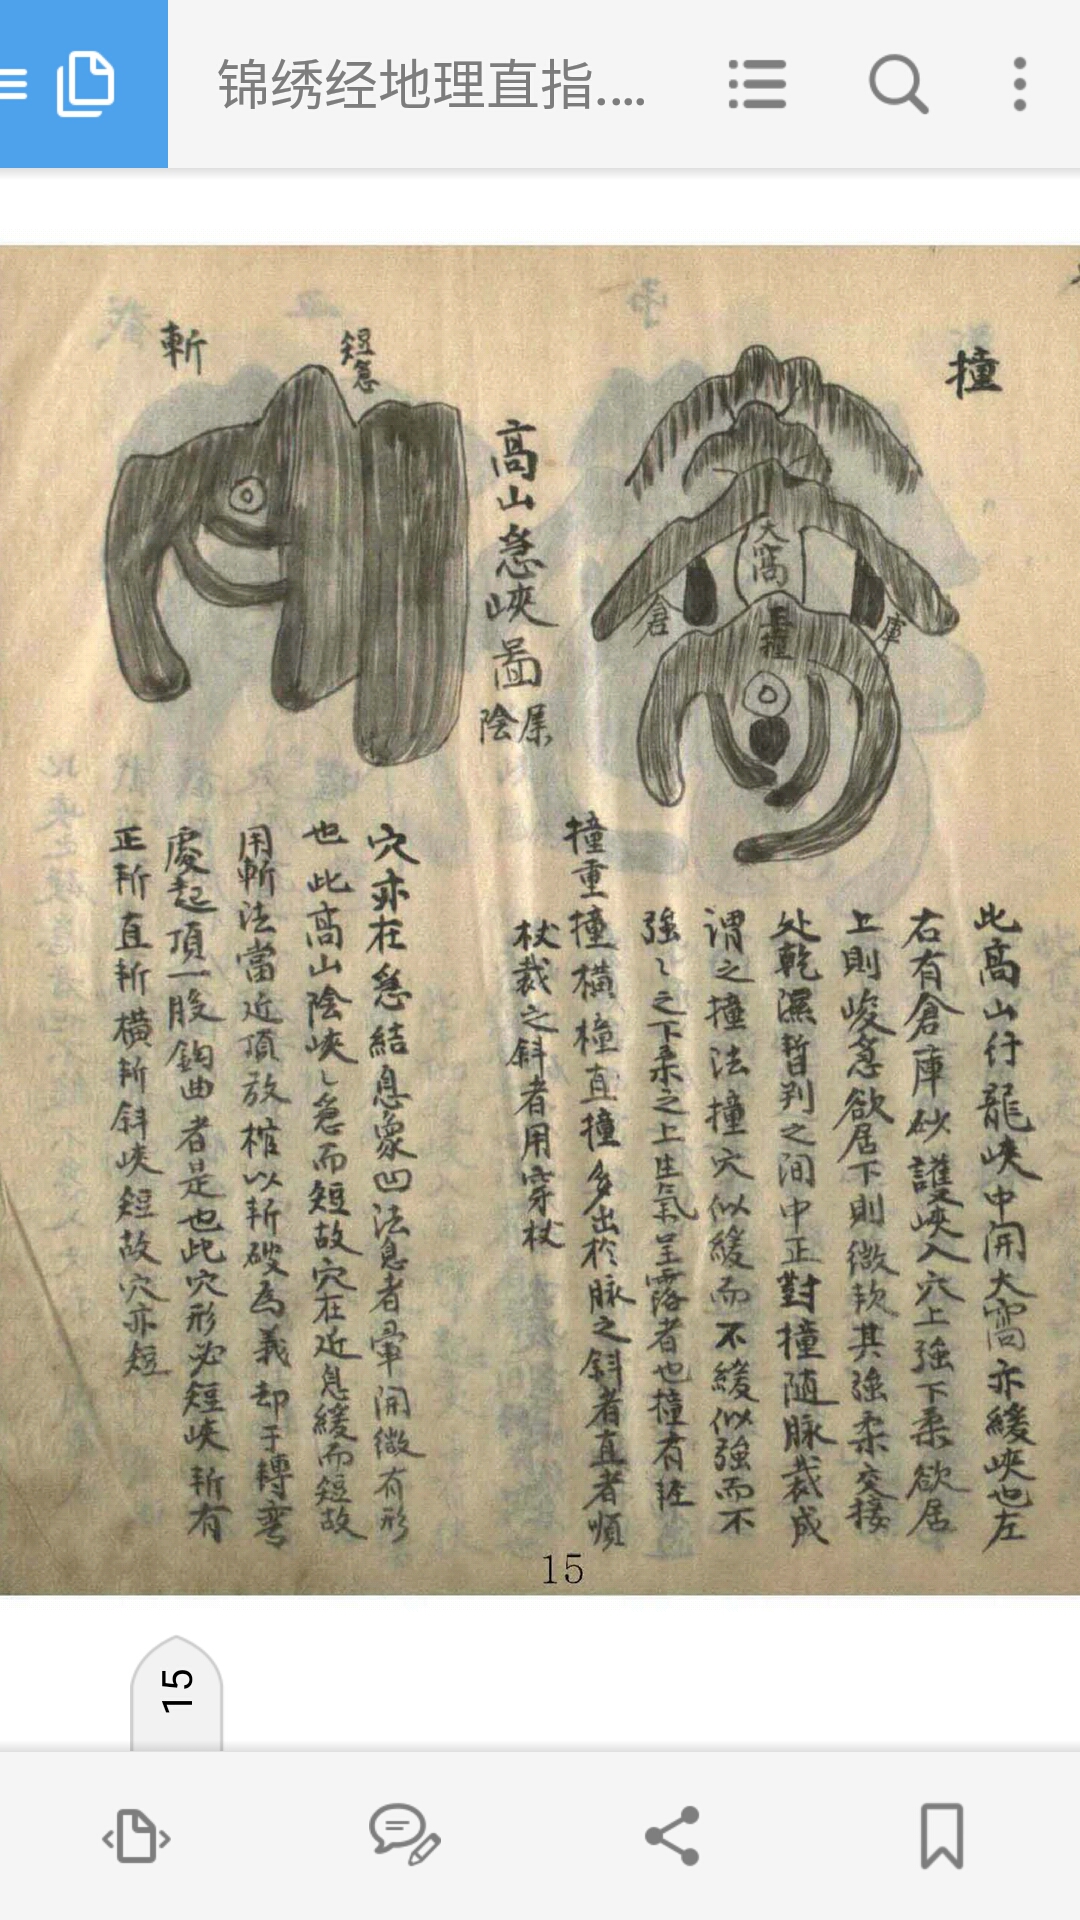 锦绣经地理直指.…
撞
大窩
倉
庫
正撞
此高山行龍峽中開大窩亦緩峽也左
右有倉庫砂護峽入穴上強下柔欲居
上則峻急欲居下則微軟其強柔交接
处乾濕暫判之间中正對撞随脉裁成
谓之撞法撞穴似緩而不緩似強而不
強〻之下柔之上生氣呈露者也撞有
撞重撞橫撞直撞多出於脉之斜者直者順
杖裁之斜者用穿杖
高山急峽啚
陰
短急
斬
穴亦在急結息象凹法息者開微有形
也此高山陰峽〻急而短故穴在近息緩而短故
用斬法當近頂放棺以斬破為義却于轉弯
處起頂一股鈎曲者是也此穴形必短峽斬有
正斬直斬橫斬斜峽短故穴亦短
15
15